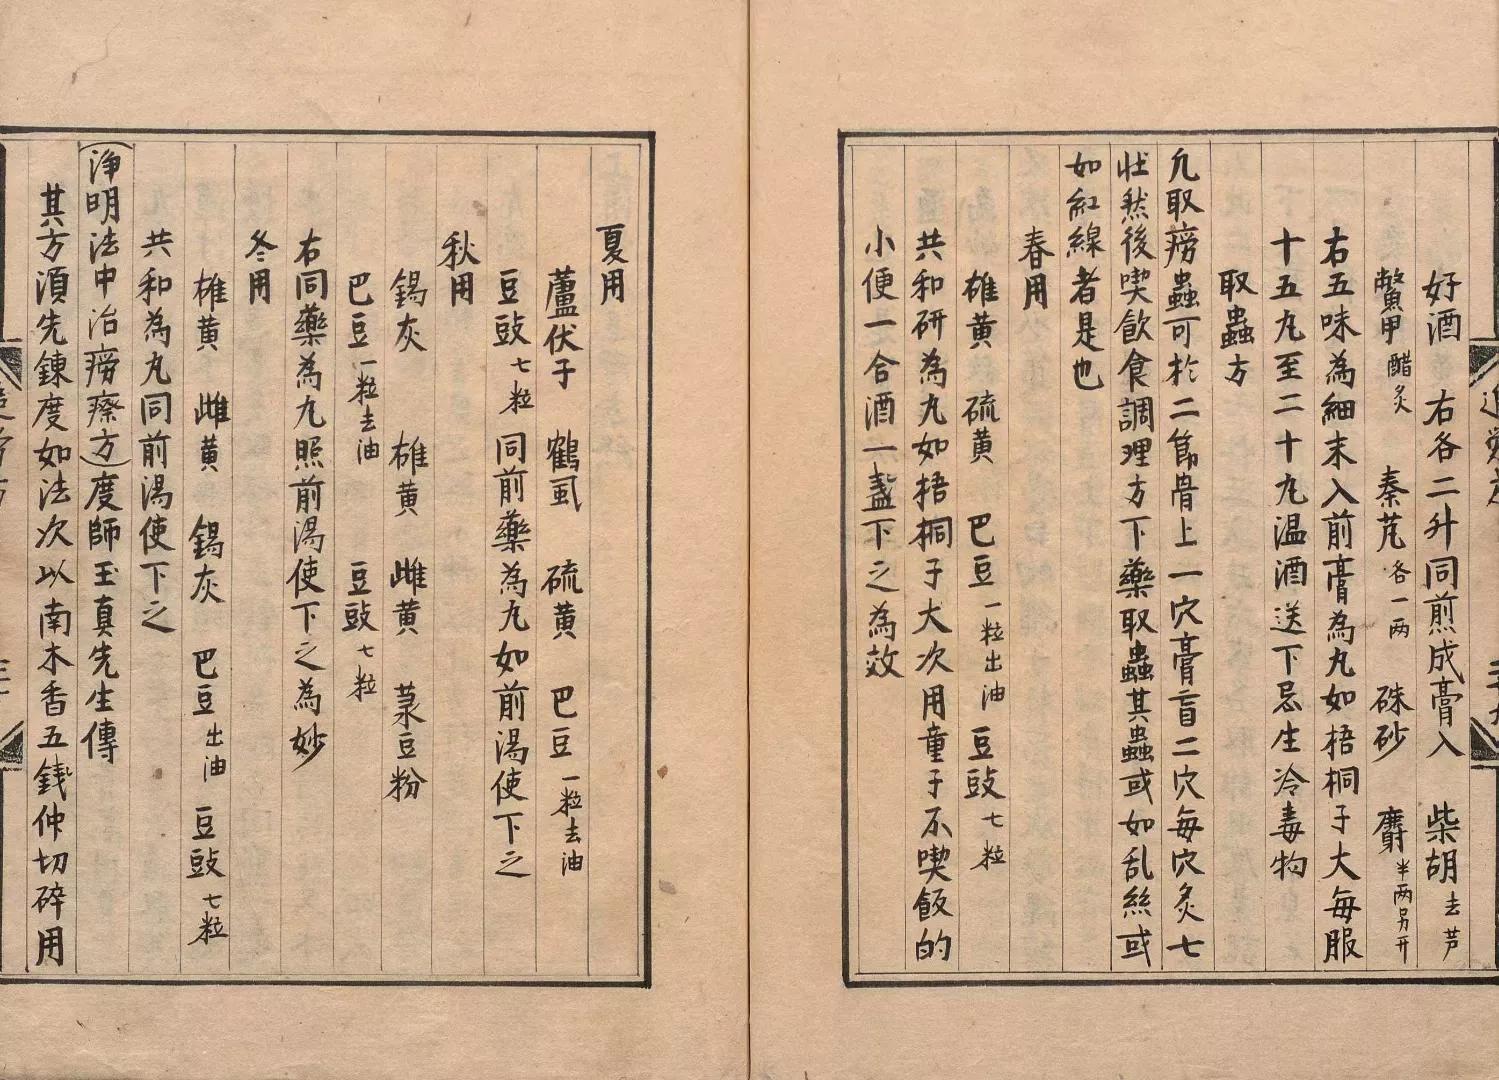 好酒 右各二升同煎成膏入 柴胡去芦
鱉甲醋炙 秦芃各一兩 硃砂 麝半兩另研
右五味為細末入前膏為丸如梧桐子大每服
十五丸至二十丸温酒送下忌生冷毒物
取蟲方
凢取癆蟲可於二節骨上一穴膏盲二穴每穴炙七
壯然後喫飲食調理方下藥取蟲其蟲或如乱絲或
如紅線者是也
春用
雄黄 硫黄 巴豆一粒出油 豆豉七粒
共和研為丸如梧桐子大次用童子不喫飯的
小便一合酒一盞下之為效
夏用
蘆伏子 鶴虱 硫黄 巴豆一粒去油
豆豉七粒 同前藥為丸如前湯使下之
秋用
錫灰 雄黄 雌黄 菉豆粉
巴豆一粒去油 豆豉七粒
右同藥為丸照前湯使下之為妙
冬用
雄黄 雌黄 錫灰 巴豆出油 豆豉七粒
共和為丸同前湯使下之
(淨明法中治癆瘵方)度師玉真先生傳
其方湏先鍊度如法次以南木香五錢仲切碎用